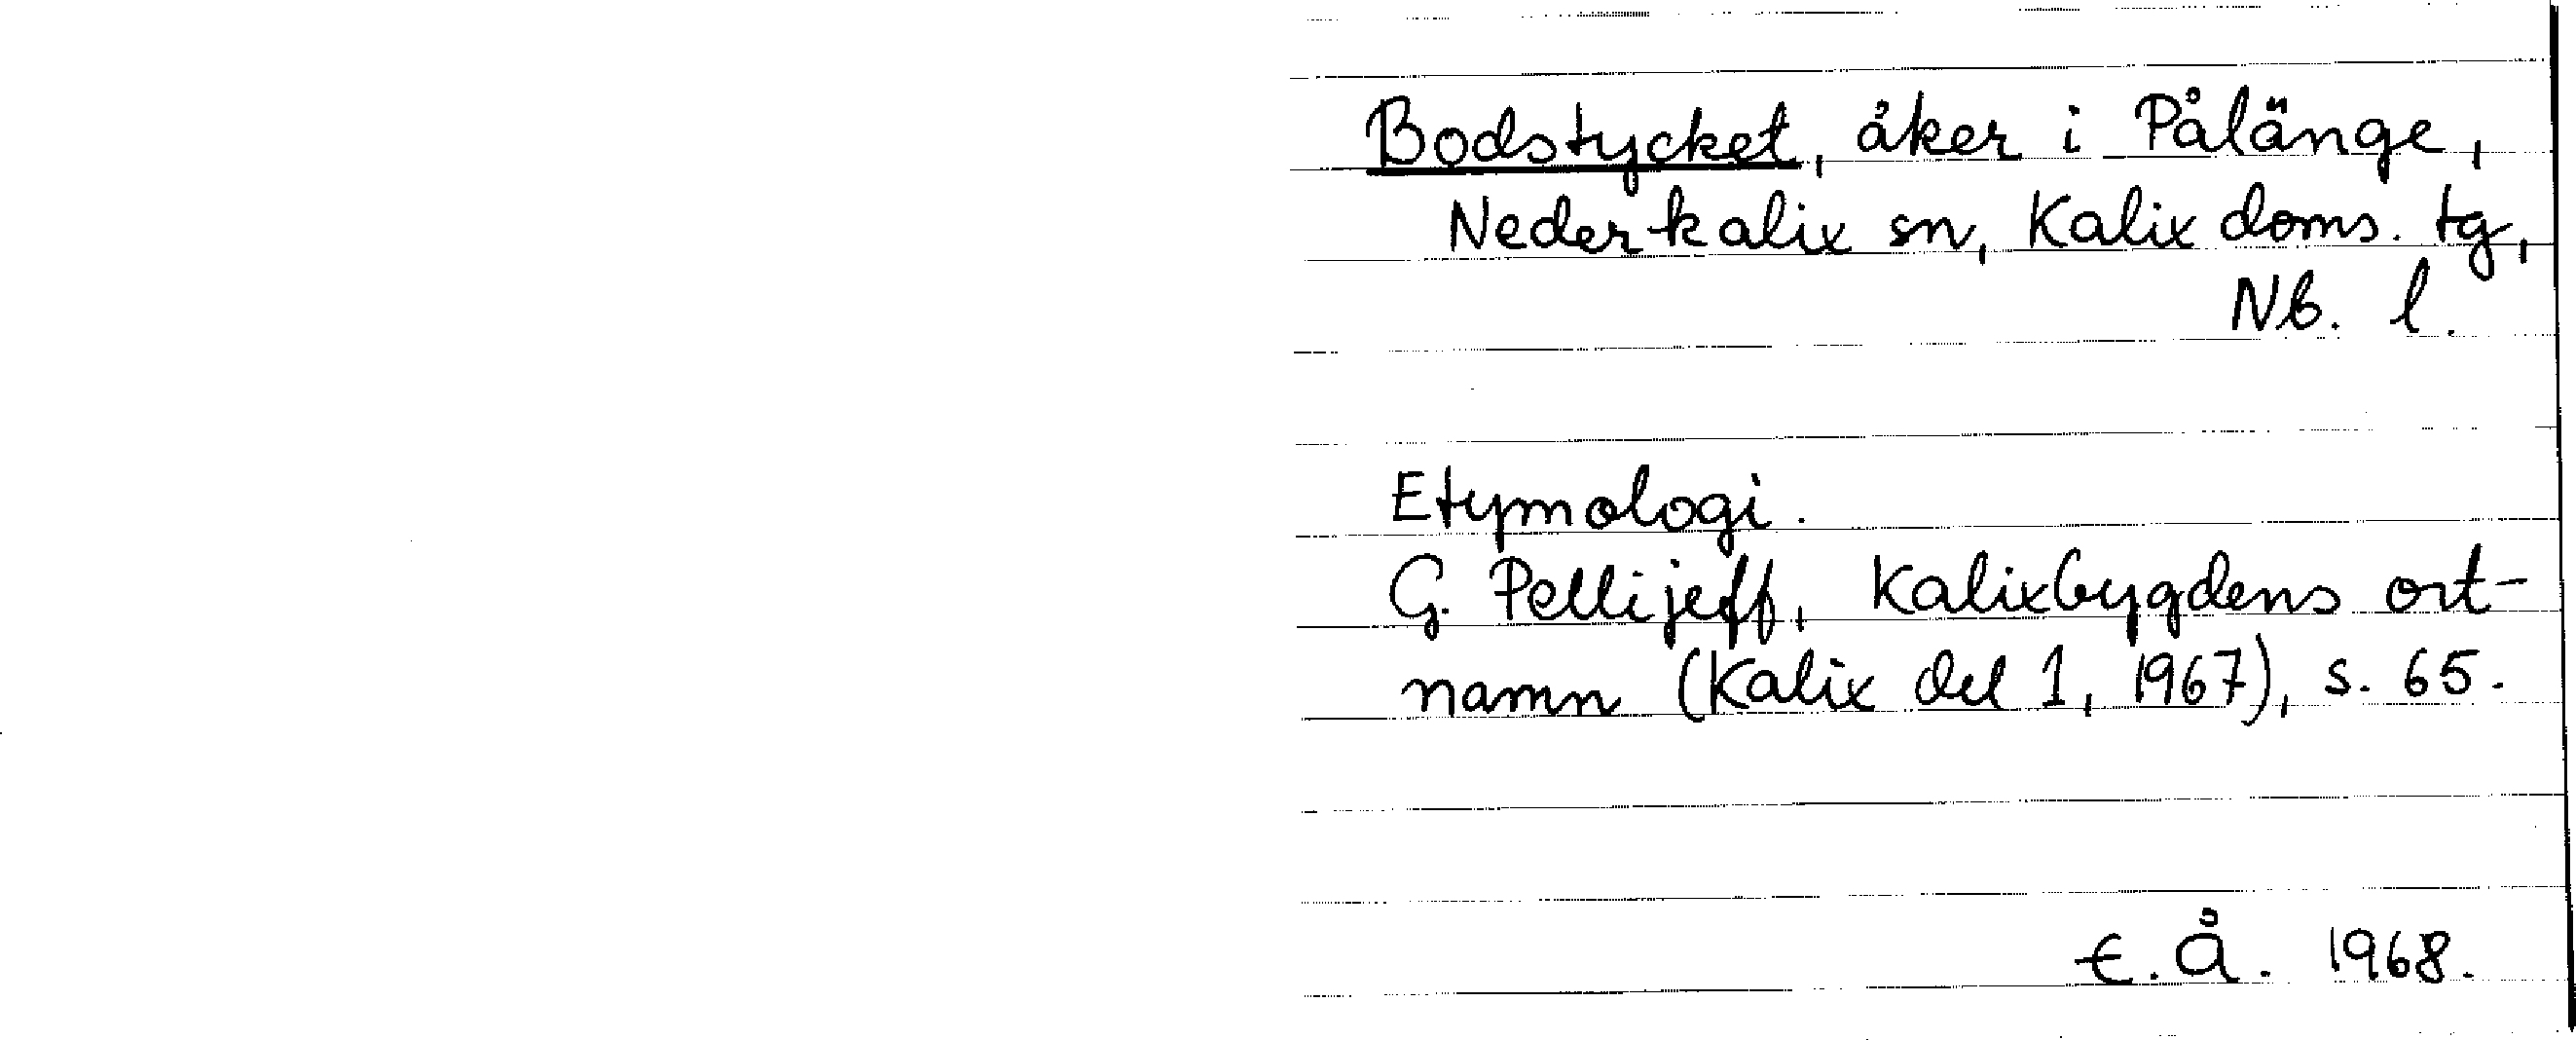 Bodstycket, åker i Pålänge,
Nederkalix sn, Kalix doms. tg,
Nb. l.
Etymologi.
G. Pellijeff, Kalixbygdens ort-
namn (Kalix del 1, 1967), s. 65.
E. Å. 1968.